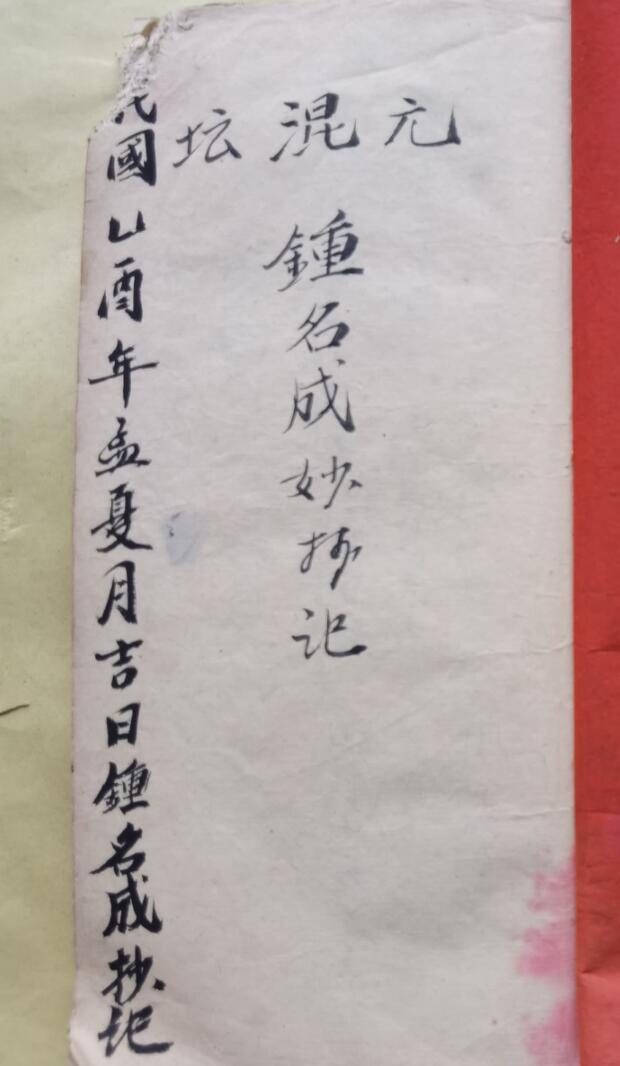 元混坛
鍾名成妙抄记
民國乙酉年孟夏月吉日鍾名成抄记